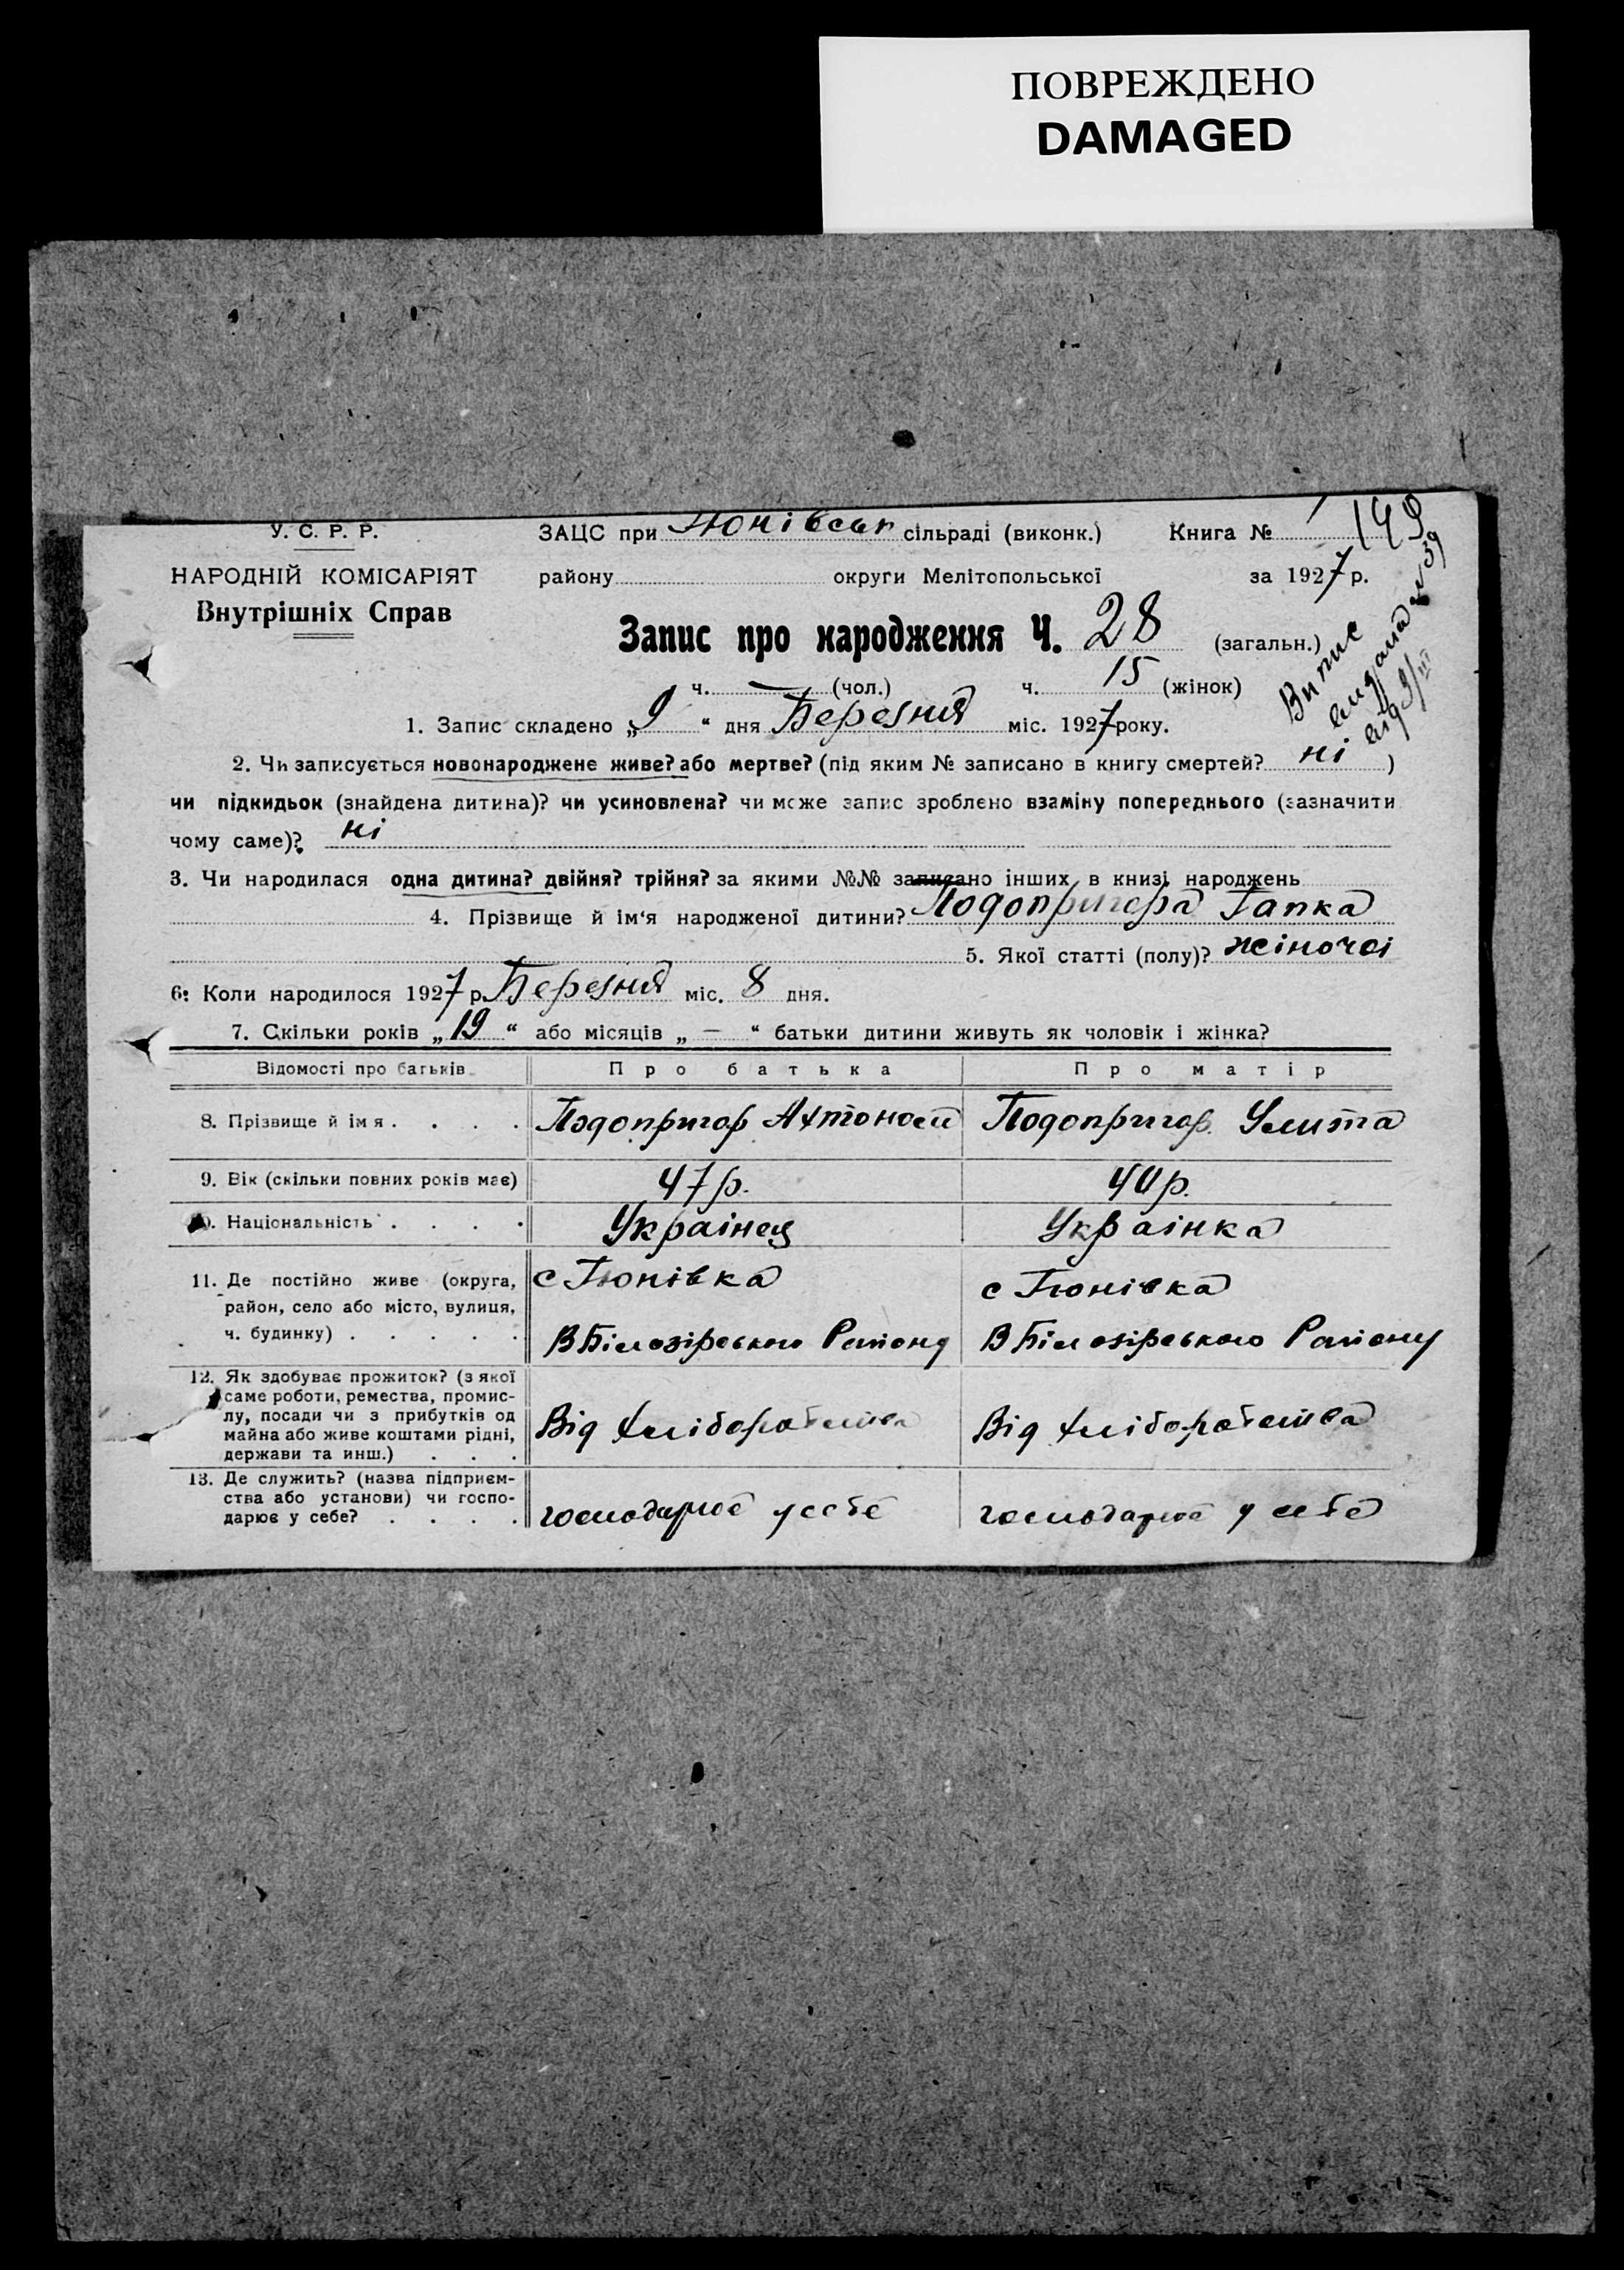 ПОВРЕЖДЕНО
DAMAGED
149
У. С. Р. Р.
НАРОДНІЙ КОМІСАРІЯТ
Внутрішніх Справ
ЗАЦС при Тюнівськ сільраді (виконк.) Книга №
району округи Мелітопольської за 1927 р.
Запис про народження Ч. 28 (загальн.)
ч. — (чол.) ч. 15 (жінок)
Випис
видана № 39
від 9/III
1. Запис складено „9“ дня Березня міс. 1927 року.
2. Чи записується новонароджене живе? або мертве? (під яким № записано в книгу смертей? ні )
чи підкидьок (знайдена дитина)? чи усиновлена? чи може запис зроблено взаміну попереднього (зазначити
чому саме)? ні
3. Чи народилася одна дитина? двійня? трійня? за якими №№ записано інших в книзі народжень
4. Прізвище й ім‘я народженої дитини? Подопригора Гапка
5. Якої статті (полу)? жіночоі
6. Коли народилося 1927 р. Березня міс. 8 дня.
7. Скільки років „19“ або місяців „—“ батьки дитини живуть як чоловік і жінка?
Відомості про батьків Про батька Про матір
8. Прізвище й імя . . . . Подопригор Подопригор Улита
9. Вік (скільки повних років має) 47 р. 40 р.
10. Національність . . . . Украінец Украінка
11. Де постійно живе (округа,
район, село або місто, вулиця,
ч. будинку) . . . . .
с Тюнівка
В Білозірського Району
с Тюнівка
В Білозірського Району
12. Як здобуває прожиток? (з якої
саме роботи, ремества, промис-
лу, посади чи з прибутків од
майна або живе коштами рідні,
держави та инш.) . . .
Від хліборобства
Від хліборобства
13. Де служить? (назва підприєм-
ства або установи) чи госпо-
дарює у себе? . . . .
господарює у себе
господарює у себе